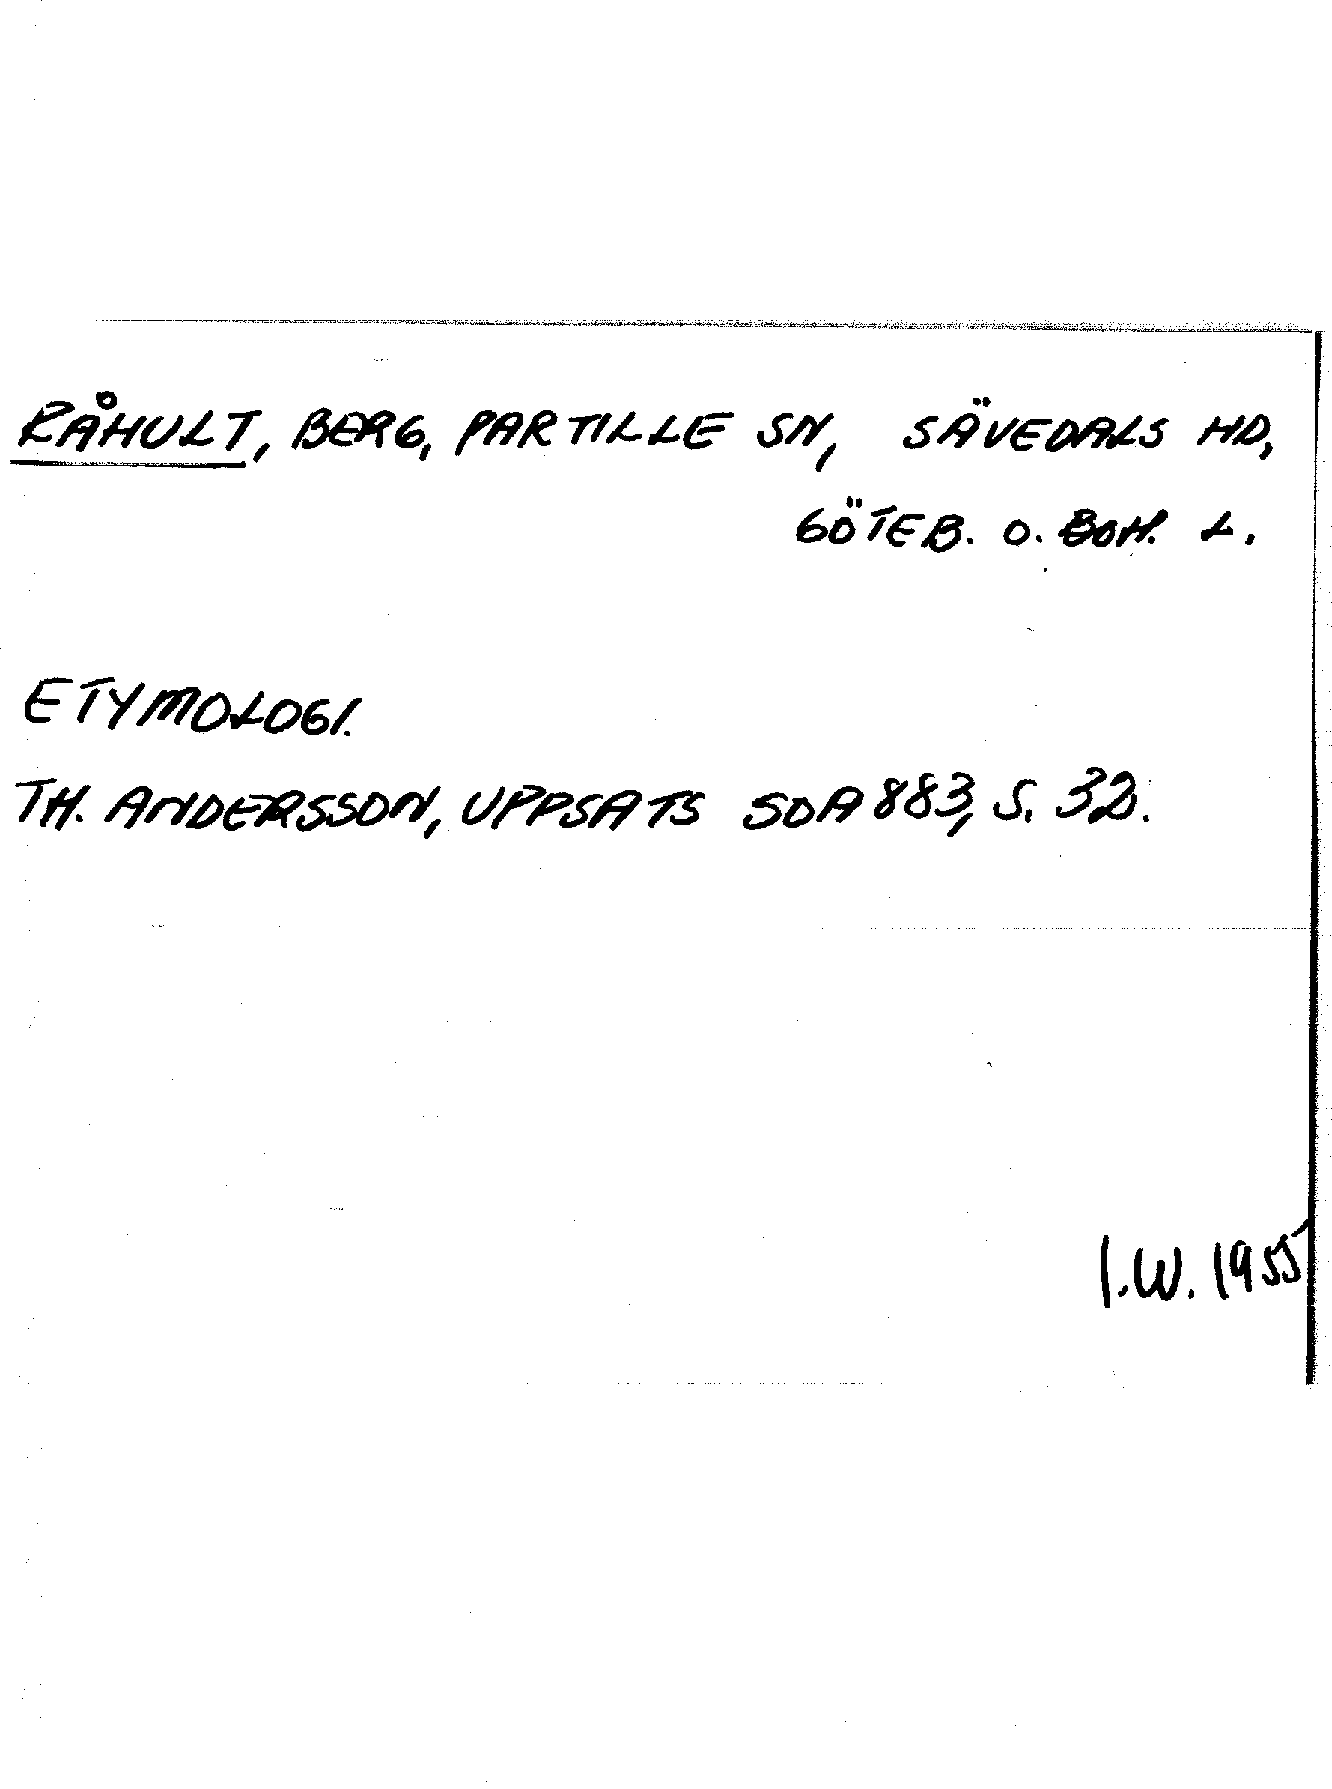 RÅHULT, BERG, PARTILLE SN, SÄVEDALS HD,
GÖTEB. O. BOH. L.
ETYMOLOGI.
TH. ANDERSSON, UPPSATS SOA 883, S. 32.
I.W. 1955